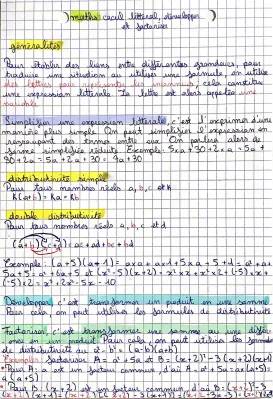 ) maths cacul littéral, développer
et factoriser )
généralités
Pour établir des liens entre différentes grandeurs, pour
traduire une situation on utilise une formule, on utilise
des lettres pour représenter les inconnus, cela constitue
une expression littérale. La lettre est alors appelée une
variable
Simplifier une expression littérale, c'est l'exprimer d'une
manière plus simple. On peut simplifier l'expression en
regroupant des termes entre eux. On parlera alors de
forme simplifiée réduite. Exemple: 5xa + 30 + 2xa = 5a +
30 + 2a = 5a + 2a + 30 = 7a + 30
distributivité simple
Pour tous nombres réels a, b, c et k
k(a+b) = ka + kb
double distributivité
Pour tous nombres réels a, b, c et d
(a+b)(c+d) = ac + ad + bc + bd
Exemple: (a+5)(a+1) = axa + ax1 + 5xa + 5+1 = a² + a +
5a + 5 = a² + 6a + 5 et (x-5)(x+2) = x² + xx2 + (-5)xx +
(-5)x2 = x² + 2x - 5x - 10
Développer, c'est transformer un produit en une somme
Pour cela, on peut utiliser les formules de distributivité
Factoriser, c'est transformer une somme ou une différ-
ence en un produit. Pour cela, on peut utiliser les formules
de distributivité ou a² - b² = (a-b)(a+b)
Exemple: factoriser A = a² + 5a et B = (x+2)² - 3(x+2)(x+1)
• Pour A: a est un facteur commun, d'où A = a² + 5a = a x a (+5)
= a(a+5)
• Pour B: (x+2) est un facteur commun, d'où B = (x+2)² - 3